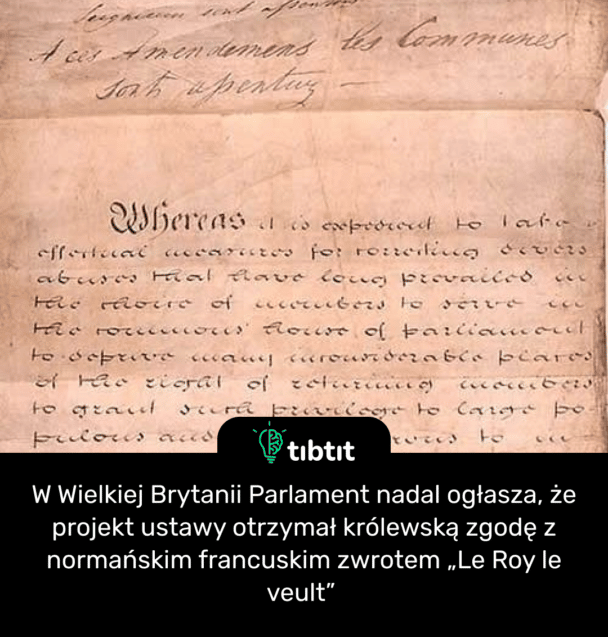 A ces Amendemens les Communes
sont assentuz
Whereas it is expedient to take
effectual measures for correcting divers
abuses that have long prevailed in
the choice of members to serve in
the commons' house of parliament
to deprive many inconsiderable places
of the right of returning members
to grant such privilege to large po-
pulous and
tibtit
W Wielkiej Brytanii Parlament nadal ogłasza, że
projekt ustawy otrzymał królewską zgodę z
normańskim francuskim zwrotem „Le Roy le
veult”